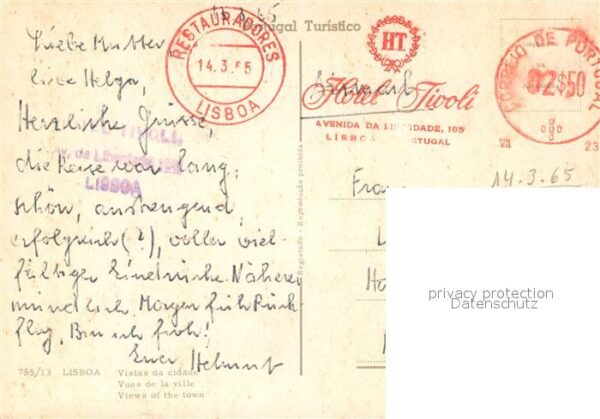 Portugal Turístico
Liebe Mutter,
liebe Helga,
Herzliche Grüsse,
die Reise war lang,
schön, anstrengend,
erfolgreich (?), voller viel-
fältiger Eindrücke. Näheres
mündlich. Morgen früh Rück-
flug. Bin ich froh!
Euer Helmut
RESTAURADORES
14.3.65
LISBOA
TIVOLI
Av. da Liberdade
LISBOA
HT
Hotel Tivoli
AVENIDA DA LIBERDADE, 185
LISBOA PORTUGAL
CORREIO DE PORTUGAL
02$50
VII
23
14.3.65
Registado - Reprodução proibida
privacy protection
Datenschutz
755/13 LISBOA Vistas da cidade
Vues de la ville
Views of the town